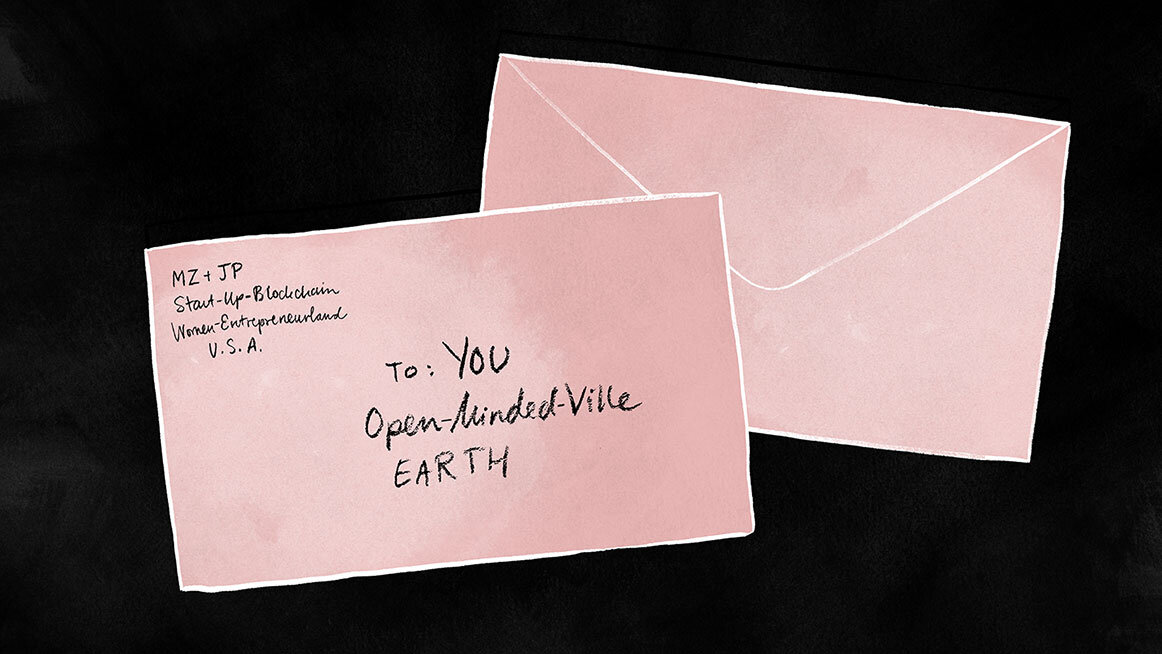 MZ + JP
Start-Up-Blockchain
Women-Entrepreneurland
U.S.A.
To: YOU
Open-Minded-Ville
EARTH